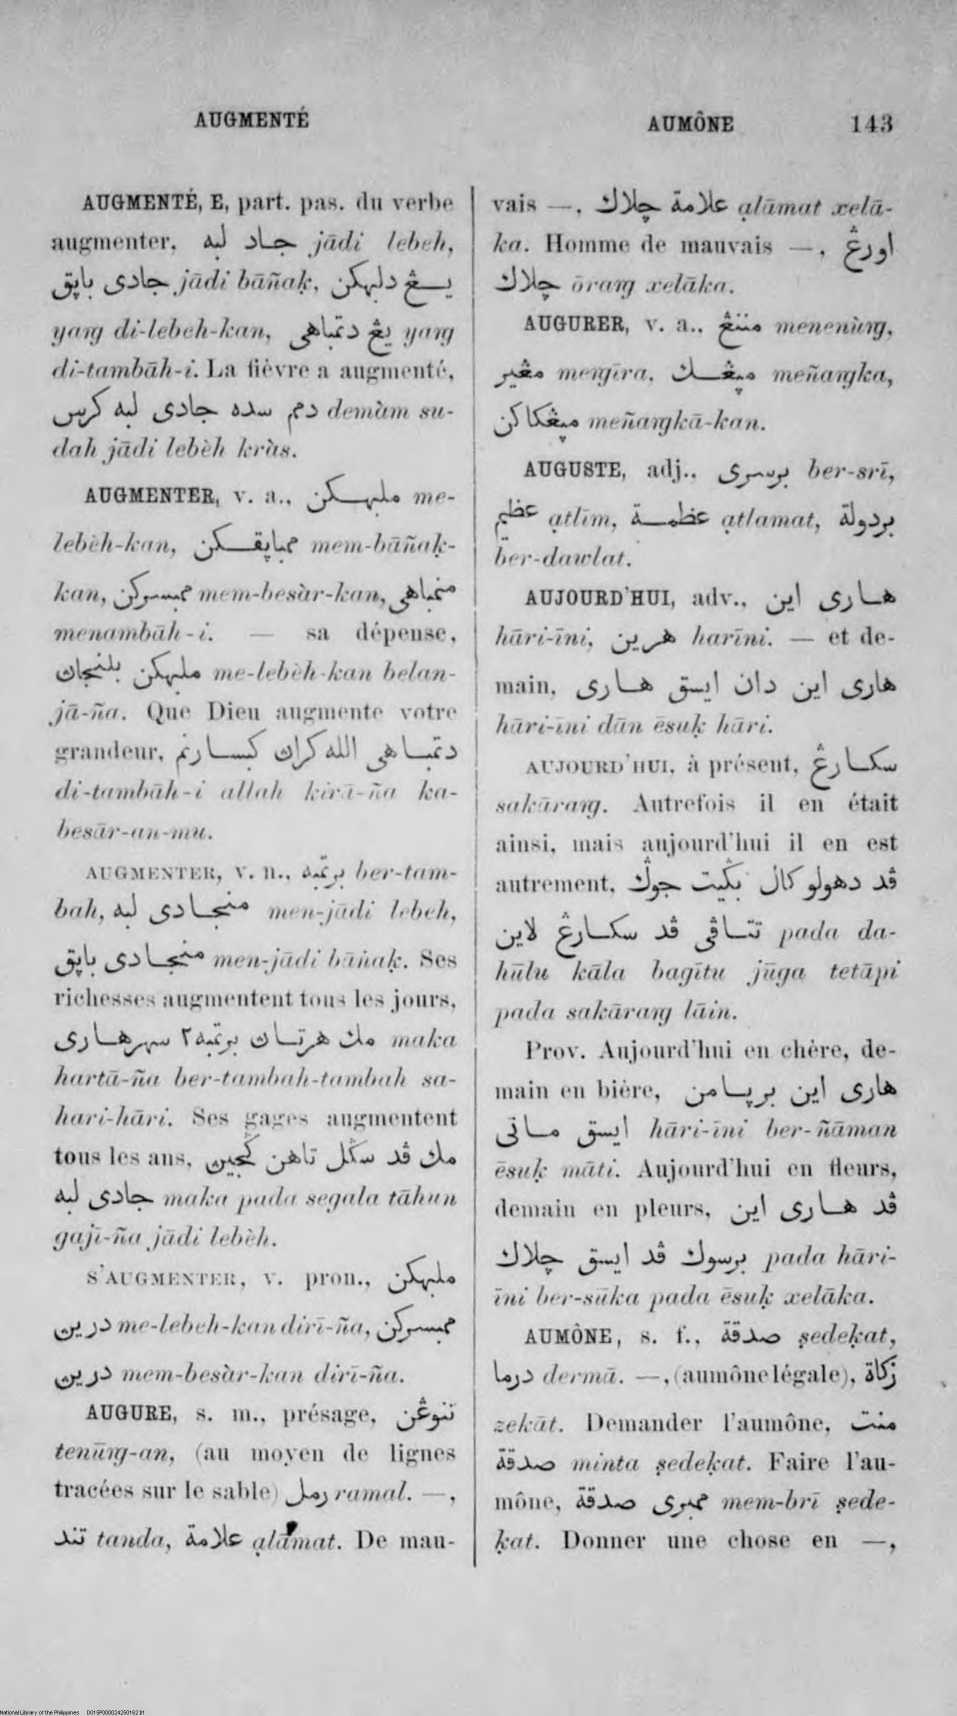 AUGMENTÉ
AUMÔNE 143
AUGMENTÉ, E, part. pas. du verbe
augmenter, جاد لبه jādi lebeh,
جادی باپق jādi bāñaḳ, يڠ دلبهكن
yaŋg di-lebeh-kan, يڠ دتمباهی yaŋg
di-tambāh-i. La fièvre a augmenté,
دمم سده جادی لبه كرس demàm su-
dah jādi lebèh kràs.
AUGMENTER, v. a., ملبهكن me-
lebèh-kan, ممباپقكن mem-bāñaḳ-
kan, ممبسركن mem-besàr-kan, منمباهی
menambāh-i. — sa dépense,
ملبهكن بلنجاڽ me-lebèh-kan belan-
jā-ña. Que Dieu augmente votre
grandeur, دتمباهی الله كراڽ كبسارنم
di-tambāh-i allah kirā-ña ka-
besār-an-mu.
AUGMENTER, v. n., برتمبه ber-tam-
bah, منجادی لبه men-jādi lebeh,
منجادی باپق men-jādi bāñaḳ. Ses
richesses augmentent tous les jours,
مك هرتاڽ برتمبه٢ سهرهاری maka
hartā-ña ber-tambah-tambah sa-
hari-hāri. Ses gages augmentent
tous les ans, مك ڤد سݢل تاهن ݢجيڽ
جادی لبه maka pada segala tāhun
gaji-ña jādi lebèh.
S'AUGMENTER, v. pron., ملبهكن
دريڽ me-lebeh-kan dirī-ña, ممبسركن
دريڽ mem-besàr-kan dirī-ña.
AUGURE, s. m., présage, تنوڠن
tenūŋg-an, (au moyen de lignes
tracées sur le sable) رمل ramal. —,
تند tanda, علامة ạlāmat. De mau-
vais —, علامة چلاك ạlāmat xelā-
ka. Homme de mauvais —, اورڠ
چلاك ōraŋg xelāka.
AUGURER, v. a., مننڠ menenùŋg,
مڠير meŋgīra, ميڠك meñaŋgka,
ميڠكاكن meñaŋgkā-kan.
AUGUSTE, adj., برسری ber-srī,
عظيم ạtlīm, عظمة ạtlamat, بردولة
ber-dawlat.
AUJOURD'HUI, adv., هاری اين
hāri-īni, هرين harīni. — et de-
main, هاری اين دان ايسق هاری
hāri-īni dān ēsuḳ hāri.
AUJOURD'HUI, à présent, سكارڠ
sakāraŋg. Autrefois il en était
ainsi, mais aujourd'hui il en est
autrement, ڤد دهولو كال بݢيت جوݢ
تتاڤی ڤد سكارڠ لاين pada da-
hūlu kāla bagītu jūga tetāpi
pada sakāraŋg lāin.
Prov. Aujourd'hui en chère, de-
main en bière, هاری اين برپامن
ايسق ماتی hāri-īni ber-ñāman
ēsuḳ māti. Aujourd'hui en fleurs,
demain en pleurs, ڤد هاری اين
برسوك ڤد ايسق چلاك pada hāri-
īni ber-sūka pada ēsuḳ xelāka.
AUMÔNE, s. f., صدقة ṣedeḳat,
درما dermā. —, (aumône légale), زكاة
zekāt. Demander l'aumône, منت
صدقة minta ṣedeḳat. Faire l'au-
mône, ممبری صدقة mem-brī ṣede-
ḳat. Donner une chose en —,
National Library of the Philippines